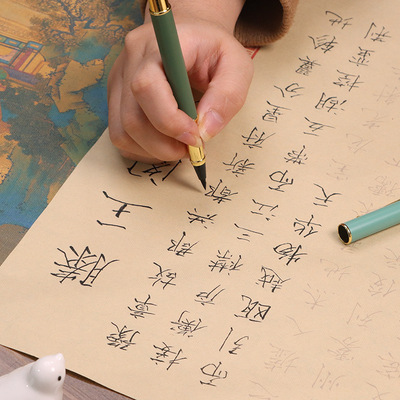 滕王阁
豫章故郡洪都新府星分翼轸地
接衡庐襟三江而带五湖控蛮荆
而引瓯越物华天